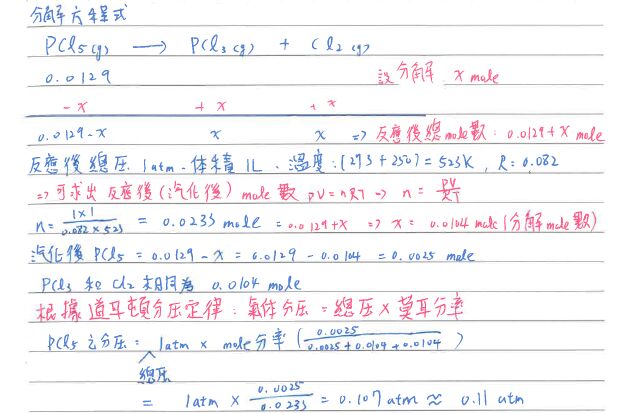 分解方程式
PCl5(g) → PCl3(g) + Cl2(g)
0.0129 設分解 x mole
-x +x +x
0.0129-x x x => 反應後總mole數: 0.0129+x mole
反應後總壓 1atm、体積1L、溫度:(273+250)=523K, R=0.082
=> 可求出 反應後(汽化後) mole 數 PV=nRT => n = PV/RT
n = 1×1/0.082×523 = 0.0233 mole = 0.0129+x => x = 0.0104 mole (分解mole數)
汽化後 PCl5 = 0.0129 - x = 0.0129 - 0.0104 = 0.0025 mole
PCl3 和 Cl2 相同為 0.0104 mole
根據道耳頓分压定律: 氣体分压 = 總压 × 莫耳分率
PCl5 之分压 = 1atm × mole分率 (0.0025/0.0025+0.0104+0.0104)
總压
= 1atm × 0.0025/0.0233 = 0.107 atm ≈ 0.11 atm